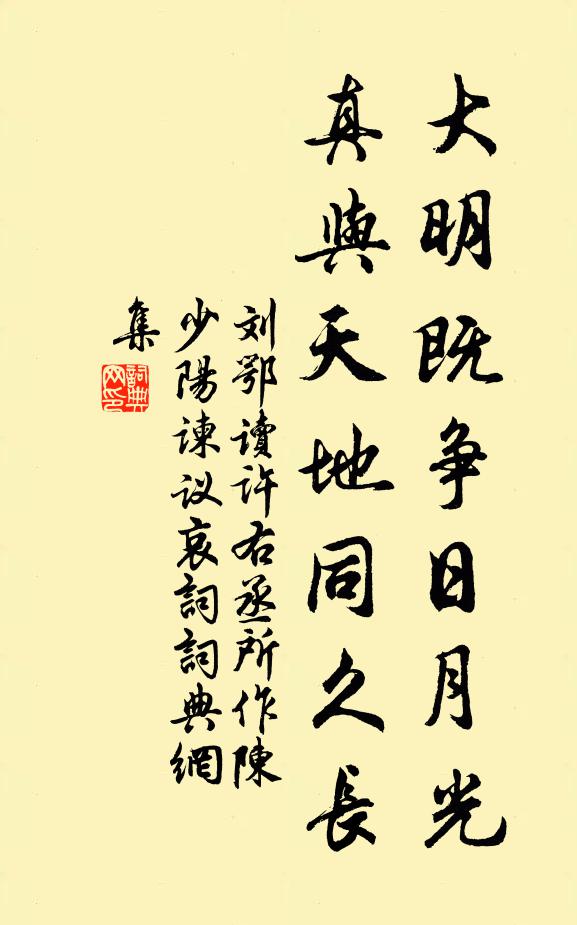 大明既争日月光
真與天地同久長
刘鄂讀许右丞所作陳
少陽諫议哀詞詞典網
集
詞典
网印